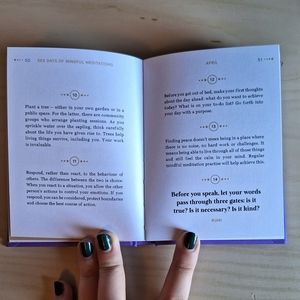 50 365 DAYS OF MINDFUL MEDITATIONS
10
Plant a tree – either in your own garden or in a
public space. For the latter, there are community
groups who arrange planting sessions. As you
sprinkle water over the sapling, think carefully
about the life you have given rise to. Trees help
living things, including other humans. Your work
is invaluable.
11
Respond, rather than react, to the behaviour of
others. The difference between the two is choice.
When you react to a situation, you allow the other
person's actions to control your emotions. If you
respond, you can be considered, protect boundaries
and choose the best course of action.
APRIL 51
12
Before you get out of bed, make your first thoughts
about the day ahead: what do you want to achieve
today? What is on your to-do list? Go forth into
your day with a purpose.
13
Finding peace doesn't mean being in a place where
there is no noise, no hard work or challenges. It
means being able to live through all of those things
and still feel the calm in your mind. Regular
mindful meditation practise will help achieve this.
14
Before you speak, let your words
pass through three gates: is it
true? Is it necessary? Is it kind?
RUMI